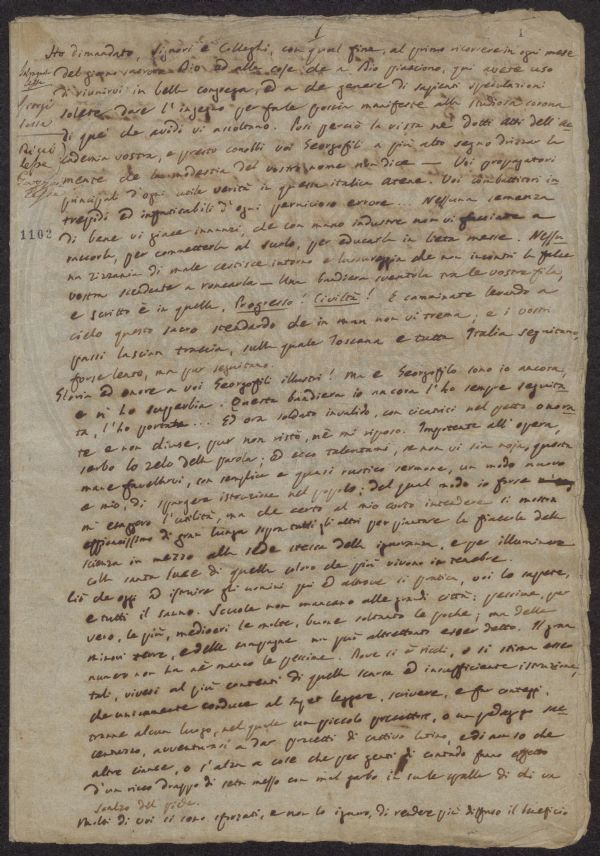 1
1
Ho dimandato, Signori e Colleghi, con qual fine, al primo ricorrere in ogni mese
del giorno sacro a Dio ed alle cose che a Dio piacciono, qui avete uso
di riunirvi in bella congrega, ed a che genere di sapienti speculazioni
solete dare l'ingegno per farle poscia manifeste alla studiosa corona
di quei che avidi vi ascoltano. Posi perciò la vista ne' dotti Atti dell'Ac
cademia vostra, e presto conobbi voi Georgofili a più alto segno drizzar la
mente che la modestia del vostro nome non dice — Voi propagatori
principali d'ogni utile verità in questa italica Atene. Voi combattitori in
trepidi ed infaticabili d'ogni pernicioso errore... Nessuna semenza
di bene vi giace innanzi, che con mano industre non vi facciate a
1102
raccorla, per commetterla al suolo, per educarla in lieta messe. Nessu
na zizzania di male cestisce intorno e lussureggia che non incontri la falce
vostra siccome a roncarla — Una bandiera sventola tra le vostre fila,
e scritto è in quella, Progresso! Civiltà! E camminate levando a
cielo questo sacro stendardo che in man non vi trema, e i vostri
passi lascian traccia, sulla quale Toscana e tutta Italia seguitano,
forse lente, ma pur seguitano.
Gloria ed onore a voi Georgofili illustri! Ma e Georgofilo sono io ancora,
e ne ho superbia. Questa bandiera io ancora l'ho sempre seguita
ta, l'ho portata... Ed ora soldato invalido, con cicatrici nel petto onora
te e non chiuse, pur non ristò, nè mi riposo. Impotente all'opera,
serbo lo zelo della parola; ed ecco talentami, se non vi sia noja, questa
mane favellarvi, con semplice e quasi rustico sermone, un modo nuovo
e mio, di spargere istruzione nel popolo; del qual modo io forse
mi esagero l'utilità, ma che certo al mio corto intendere si mostra
efficacissimo di gran lunga sopra tutti gli altri per piantare la fiaccola della
scienza in mezzo alla sede stessa della ignoranza, e per illuminare
colla santa luce di quella coloro che più vivono in tenebre.
Ciò che oggi ad istruire gli uomini qui ed altrove si pratica, voi lo sapete,
e tutti il sanno. Scuole non mancano alle grandi città; pessime, per
vero, le più, mediocri le molte, buone soltanto le poche; ma delle
minori terre, e delle campagne non può altrettanto esser detto. Il gran
numero non ha nè meno le pessime. Dove si è ricchi, o si stima esser
tali, vivesi al più contenti di quella scarsa ed insufficiente istruzione,
che unicamente conduce al saper leggere, scrivere, e far conteggi.
tranne alcun luogo, nel quale un piccolo precettore, o un pedagogo sac
centuzzo, avventurasi a dar precetti di cattivo latino, e di non so che
altre ciance, o s'alza a cose che per genti di contado fanno effetto
d'un ricco drappo di seta messo con mal garbo in sulle spalle di chi va
scalzo del piede.
Molti di voi si sono sforzati, e non lo ignoro, di render più diffuso il beneficio